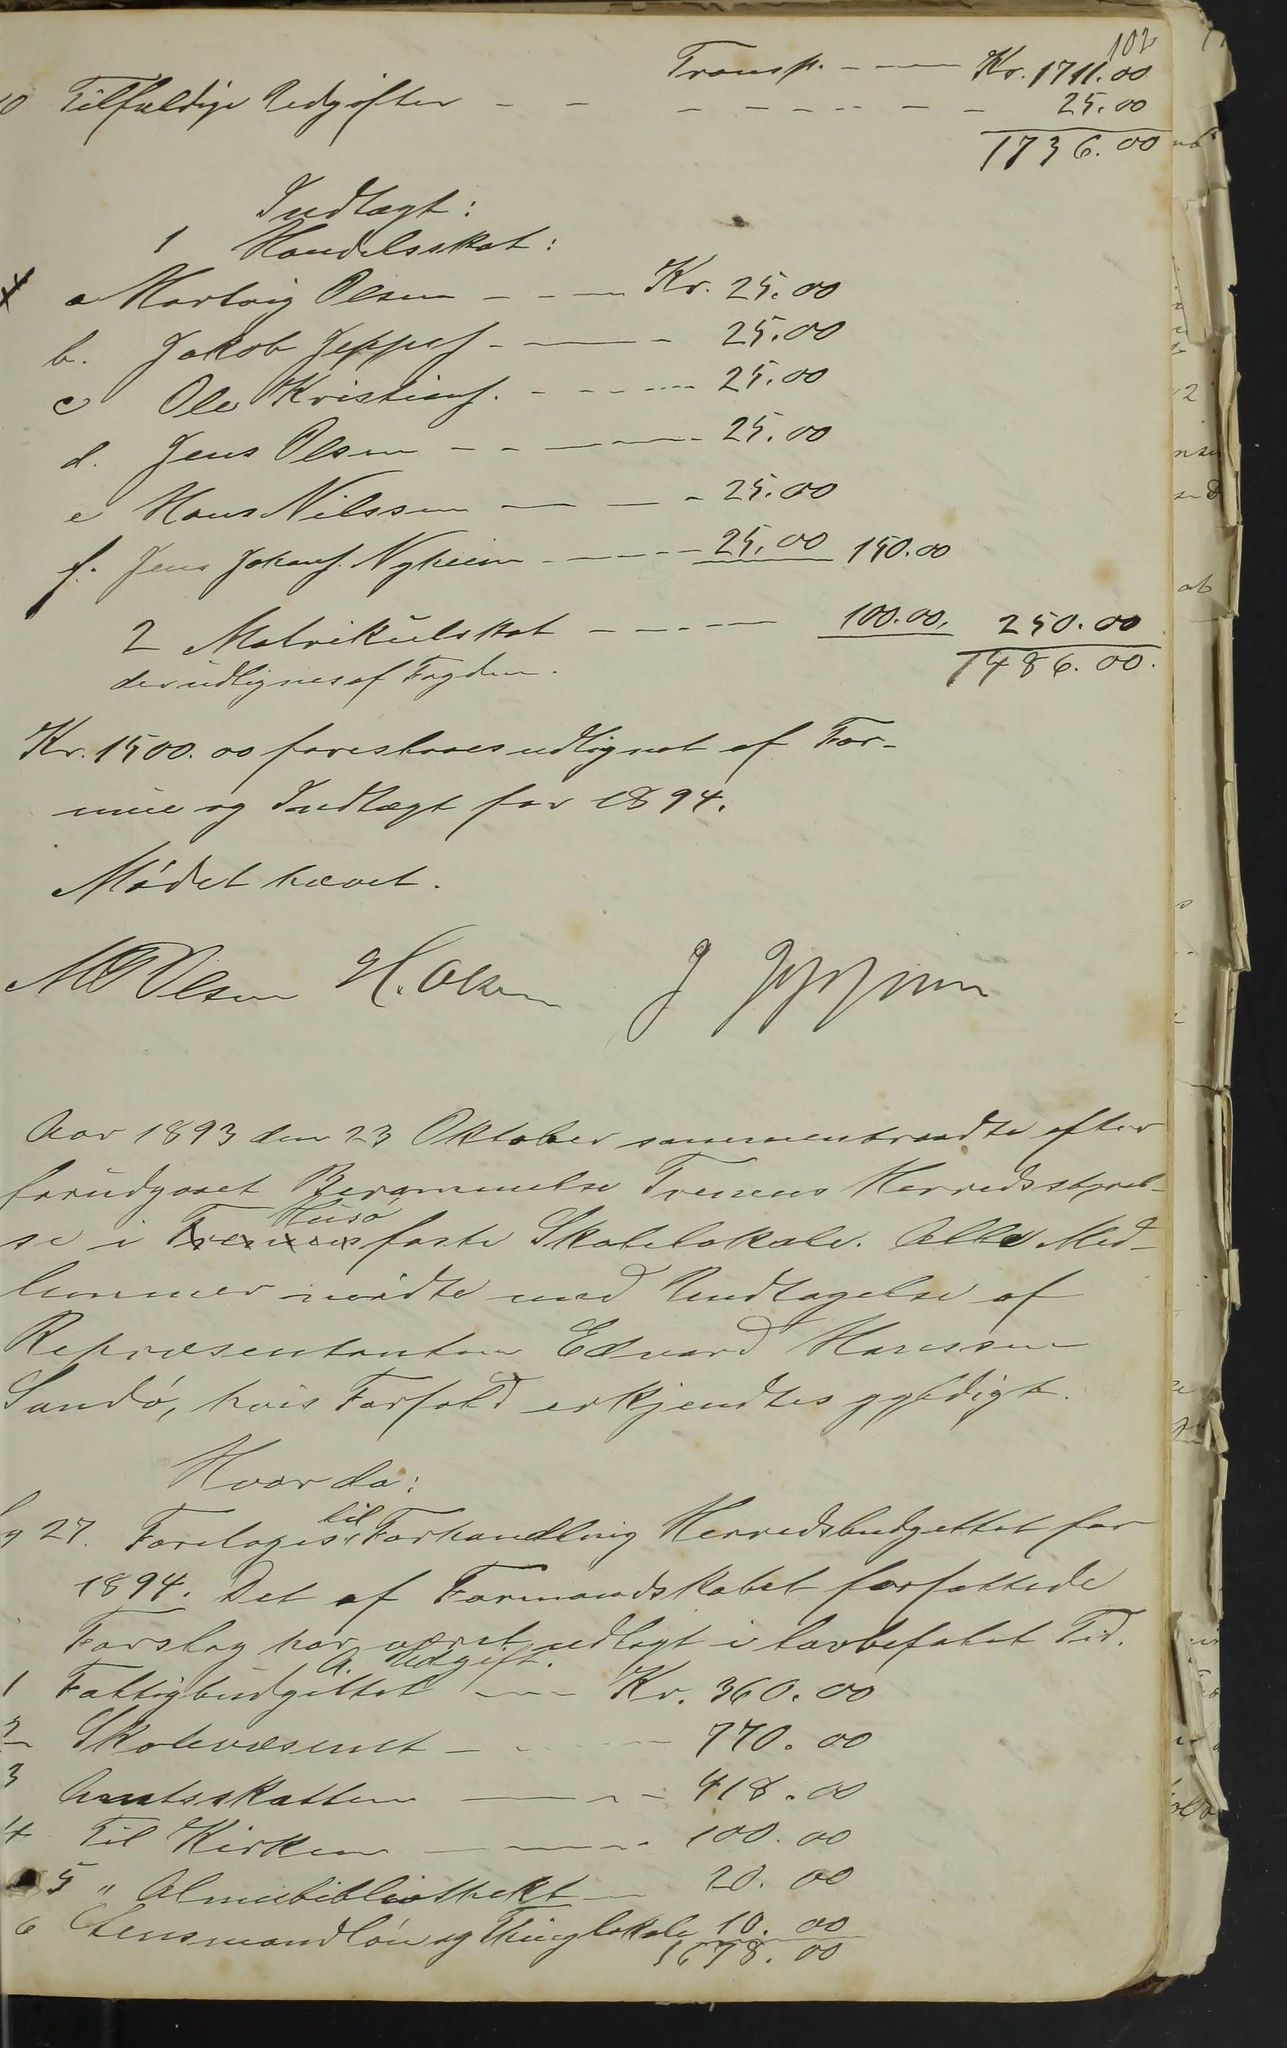 102
Transp. - - - Kr. 1711.00
10 Tilfældige Udgifter - - - - - - - - - 25.00
1736.00
Indtægt:
1 Handelsskat:
a Hartvig Olsen - - - Kr. 25.00
b. Jakob Jeppes. - - - 25.00
c Ole Kristians. - - - - 25.00
d. Jens Olsen - - - - 25.00
e Hans Nilssen - - - 25.00
f. Jens Johans. Nyheim - - - - 25.00 150.00
2 Matrikulskat - - - - - 100.00. 250.00
der udlignes af Fogden. 1486.00.
Kr. 1500.00 foreslaaes udlignet af For-
mue og Indtægt for 1894.
Mødet hævet.
Olsen H. Olsen J Jeppesen
Aar 1893 den 23 Oktober sammentraadte efter
forudgaaet Berammelse Trenens Herredsstyrel-
se i Trenens Husø faste Skolelokale. Alle Med-
lemmer mødte med Undtagelse af
Repræsentanten Edvard Hanssen
Sandø, hvis Forfald erkjendtes gyldigt.
Hvor da:
Sag 27. Foretoges til Forhandling Herredsbudgettet for
1894. Det af Formandskabet forfattede
Forslag har været udlagt i lovbefalet Tid.
A. Udgift.
1 Fattigbudgettet - - - Kr. 360.00
2 Skolevæsenet - - - 770.00
3 Amtsskatten - - - 418.00
4 Til Kirken - - - 100.00
5 " Almuebibliotheket - 20.00
6 Lensmandløn og Thinglokale 10.00
1678.00